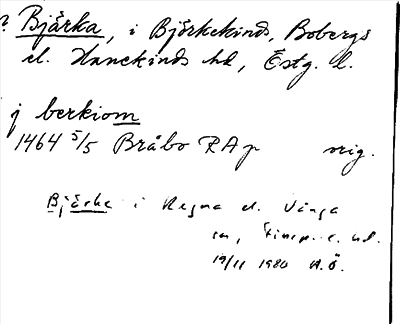 ? Bjärka, i Björkekinds, Bobergs
el. Hanekinds hd, Östg. l.
j berkiom
1464 5/5 Bråbo RAp orig.
Bjärka i Regna el. Vånga
sn, Finsp. l. hd.
19/11 1980 A.Ö.